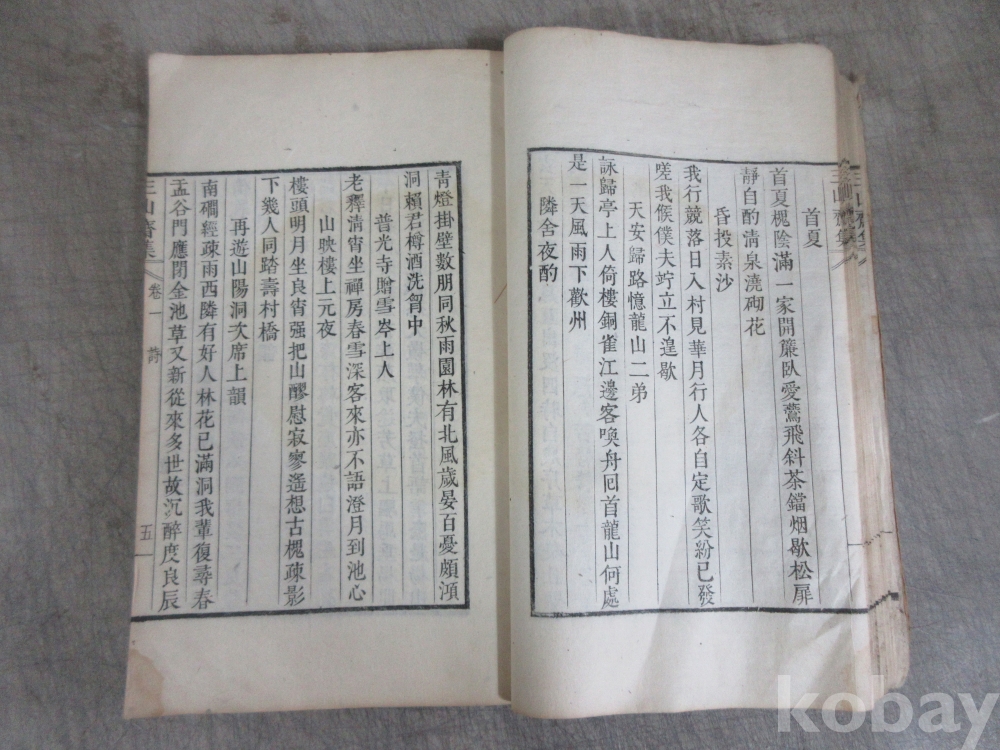 首夏
首夏槐陰滿一家開簾臥愛鶯飛斜茶鐺烟歇松扉
靜自酌清泉澆砌花
昏投素沙
我行競落日入村見華月行人各自定歌笑紛已發
嗟我候僕夫竚立不遑歇
天安歸路憶龍山二弟
詠歸亭上人倚樓銅雀江邊客喚舟回首龍山何處
是一天風雨下歡州
隣舍夜酌
青燈掛壁數朋同秋雨園林有北風歲晏百憂頗澒
洞賴君樽酒洗胷中
普光寺贈雪岑上人
老釋清宵坐禪房春雪深客來亦不語澄月到池心
山映樓上元夜
樓頭明月坐良宵强把山醪慰寂寥遙想古槐疎影
下幾人同踏壽村橋
再遊山陽洞次席上韻
南磵經疎雨西隣有好人林花已滿洞我輩復尋春
盂谷門應閉金池草又新從來多世故沉醉度良辰
三山齋集 卷一 詩 五
kobay